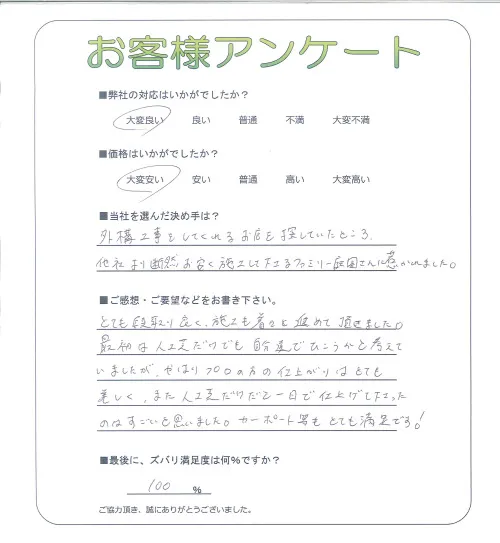 お客様アンケート
■弊社の対応はいかがでしたか？
大変良い 良い 普通 不満 大変不満
■価格はいかがでしたか？
大変安い 安い 普通 高い 大変高い
■当社を選んだ決め手は？
外構工事をしてくれるお店を探していたところ、
他社より断然お安く施工して下さるファミリー庭園さんに惹かれました。
■ご感想・ご要望などをお書き下さい。
とても段取り良く、施工も着々と進めて頂きました。
最初は人工芝だけでも自分達でひこうかと考えて
いましたが、やはりプロの方の仕上がりはとても
美しく、また人工芝だけだと一日で仕上げて下さった
のはすごいと思いました。カーポート等もとても満足です!
■最後に、ズバリ満足度は何％ですか？
100 %
ご協力頂き、誠にありがとうございました。